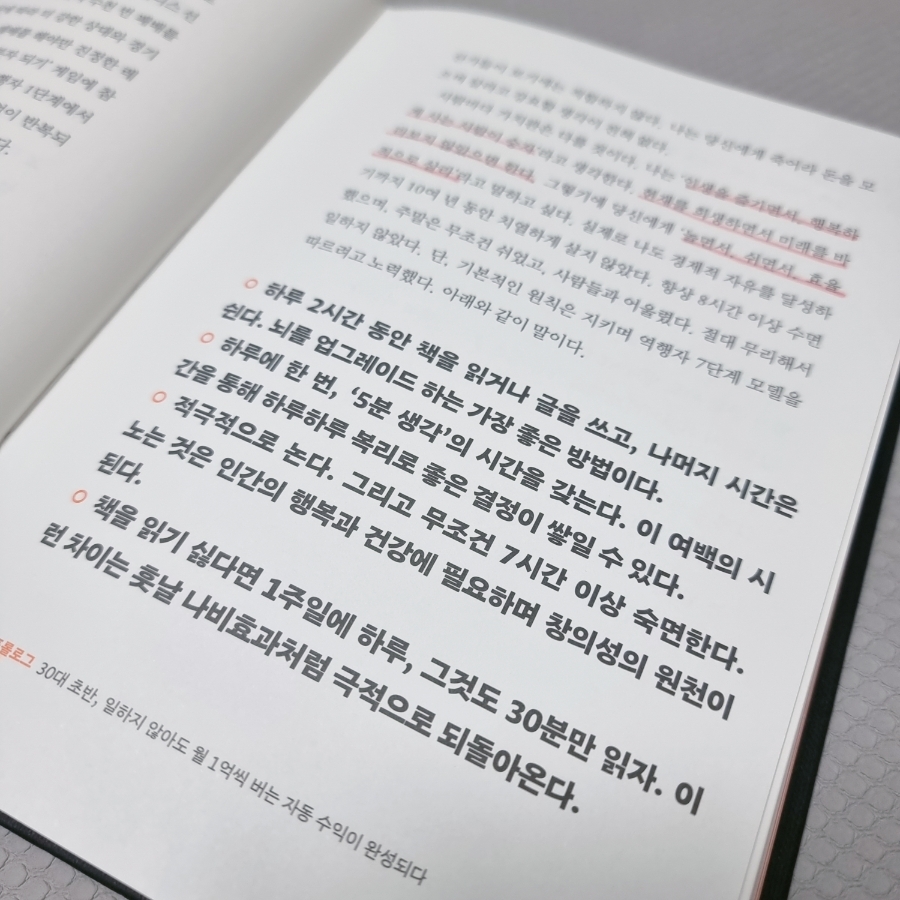 진정한 매
게임에 참
1단계에서
반복되
다.
않다. 나는 당신에게 죽어라 돈을 모
으라 말하고 강요할 생각이 전혀 없다.
사람마다 가치관은 다를 것이다. 나는 '인생을 즐기면서, 행복하
게 사는 사람이 승자'라고 생각한다. 현재를 희생하면서 미래를 바
라보지 않았으면 한다. 그렇기에 당신에게 '놀면서, 쉬면서, 효율
적으로 살라'라고 말하고 싶다. 실제로 나도 경제적 자유를 달성하
기까지 10여 년 동안 치열하게 살지 않았다. 항상 8시간 이상 수면
했으며, 주말은 무조건 쉬었고, 사람들과 어울렸다. 절대 무리해서
일하지 않았다. 단, 기본적인 원칙은 지키며 역행자 7단계 모델을
따르려고 노력했다. 아래와 같이 말이다.
○ 하루 2시간 동안 책을 읽거나 글을 쓰고, 나머지 시간은
쉰다. 뇌를 업그레이드 하는 가장 좋은 방법이다.
○ 하루에 한 번, '5분 생각'의 시간을 갖는다. 이 여백의 시
간을 통해 하루하루 복리로 좋은 결정이 쌓일 수 있다.
○ 적극적으로 논다. 그리고 무조건 7시간 이상 숙면한다.
노는 것은 인간의 행복과 건강에 필요하며 창의성의 원천이
된다.
○ 책을 읽기 싫다면 1주일에 하루, 그것도 30분만 읽자. 이
런 차이는 훗날 나비효과처럼 극적으로 되돌아온다.
프롤로그 30대 초반, 일하지 않아도 월 1억씩 버는 자동 수익이 완성되다